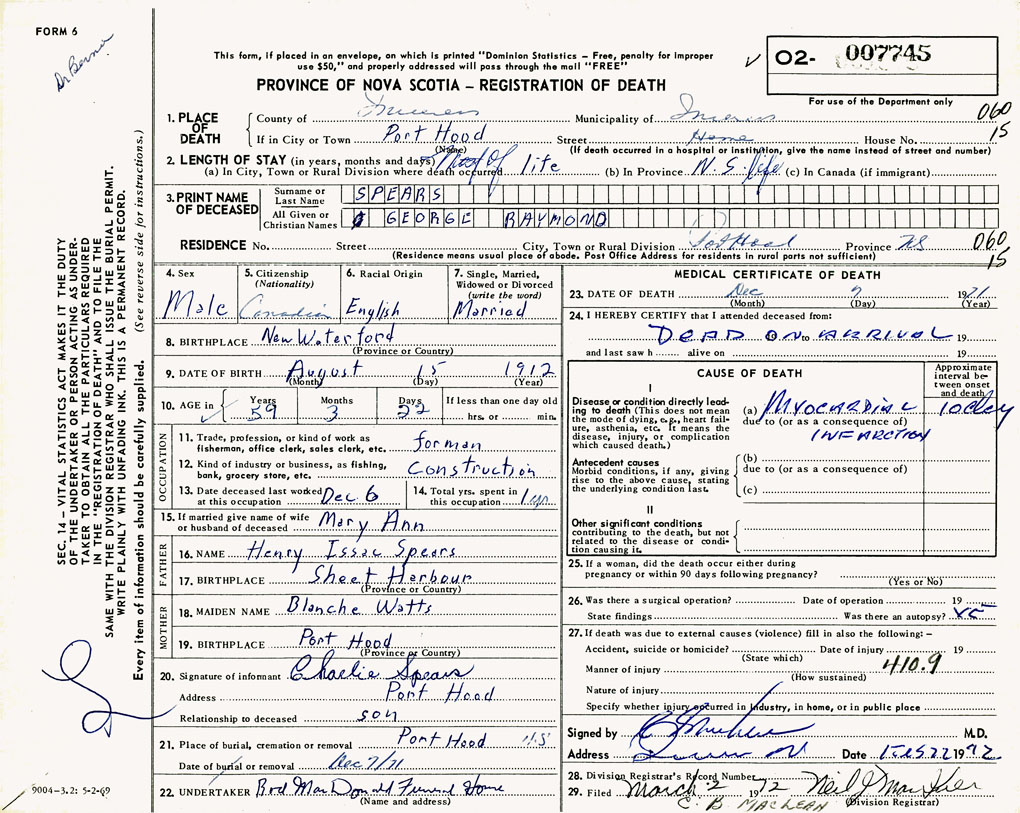 FORM 6
Dr Bernier
This form, if placed in an envelope, on which is printed "Dominion Statistics - Free, penalty for improper
use $50," and properly addressed will pass through the mail "FREE"
PROVINCE OF NOVA SCOTIA — REGISTRATION OF DEATH
✓ O2- 007745
For use of the Department only
1. PLACE OF DEATH
County of Inverness Municipality of Inverness 060
If in City or Town Port Hood (Name) Street Home House No. 15
(If death occurred in a hospital or institution, give the name instead of street and number)
2. LENGTH OF STAY (in years, months and days)
(a) In City, Town or Rural Division where death occurred Most of life (b) In Province N.S. life (c) In Canada (if immigrant)
3. PRINT NAME OF DECEASED
Surname or Last Name SPEARS
All Given or Christian Names GEORGE RAYMOND
RESIDENCE No. Street City, Town or Rural Division Port Hood Province NS 060
(Residence means usual place of abode. Post Office Address for residents in rural parts not sufficient) 15
4. Sex Male
5. Citizenship (Nationality) Canadian
6. Racial Origin English
7. Single, Married, Widowed or Divorced (write the word) Married
8. BIRTHPLACE New Waterford
(Province or Country)
9. DATE OF BIRTH August 15 1912
(Month) (Day) (Year)
10. AGE in Years 59 Months 3 Days 22 If less than one day old hrs. or min.
OCCUPATION
11. Trade, profession, or kind of work as
fisherman, office clerk, sales clerk, etc. forman
12. Kind of industry or business, as fishing,
bank, grocery store, etc. Construction
13. Date deceased last worked at this occupation Dec 6
14. Total yrs. spent in this occupation 1 yr.
15. If married give name of wife or husband of deceased Mary Ann
FATHER
16. NAME Henry Issac Spears
17. BIRTHPLACE Sheet Harbour
(Province or Country)
MOTHER
18. MAIDEN NAME Blanche Watts
19. BIRTHPLACE Port Hood
(Province or Country)
20. Signature of informant Charlie Spears
Address Port Hood
Relationship to deceased son
21. Place of burial, cremation or removal Port Hood N.S
Date of burial or removal Dec 7/71
22. UNDERTAKER Rod MacDonald Funeral Home
(Name and address)
MEDICAL CERTIFICATE OF DEATH
23. DATE OF DEATH Dec 7 1971
(Month) (Day) (Year)
24. I HEREBY CERTIFY that I attended deceased from:
DEAD ON to ARRIVAL 19
and last saw h alive on 19
CAUSE OF DEATH
Approximate interval between onset and death
I
Disease or condition directly leading to death (This does not mean the mode of dying, e.g., heart failure, asthenia, etc. It means the disease, injury, or complication which caused death.)
(a) MYOCARDIAL
due to (or as a consequence of)
INFARCTION
Antecedent causes
Morbid conditions, if any, giving rise to the above cause, stating the underlying condition last.
(b)
due to (or as a consequence of)
(c)
II
Other significant conditions
contributing to the death, but not related to the disease or condition causing it.
25. If a woman, did the death occur either during
pregnancy or within 90 days following pregnancy?
(Yes or No)
26. Was there a surgical operation? Date of operation 19
State findings Was there an autopsy?
27. If death was due to external causes (violence) fill in also the following: —
Accident, suicide or homicide? Date of injury 19
(State which)
Manner of injury 410.9
(How sustained)
Nature of injury
Specify whether injury occurred in industry, in home, or in public place
Signed by M.D.
Address Date Feb 22 1972
28. Division Registrar's Record Number
29. Filed March 2 1972
C. B. MACLEAN (Division Registrar)
SEC. 14 — VITAL STATISTICS ACT MAKES IT THE DUTY
OF THE UNDERTAKER OR PERSON ACTING AS UNDER-
TAKER TO OBTAIN ALL THE PARTICULARS REQUIRED
IN THE "REGISTRATION OF DEATH" AND TO FILE THE
SAME WITH THE DIVISION REGISTRAR WHO SHALL ISSUE THE BURIAL PERMIT.
WRITE PLAINLY WITH UNFADING INK. THIS IS A PERMANENT RECORD.
Every item of information should be carefully supplied. (See reverse side for instructions.)
9004-3.2: 5-2-69